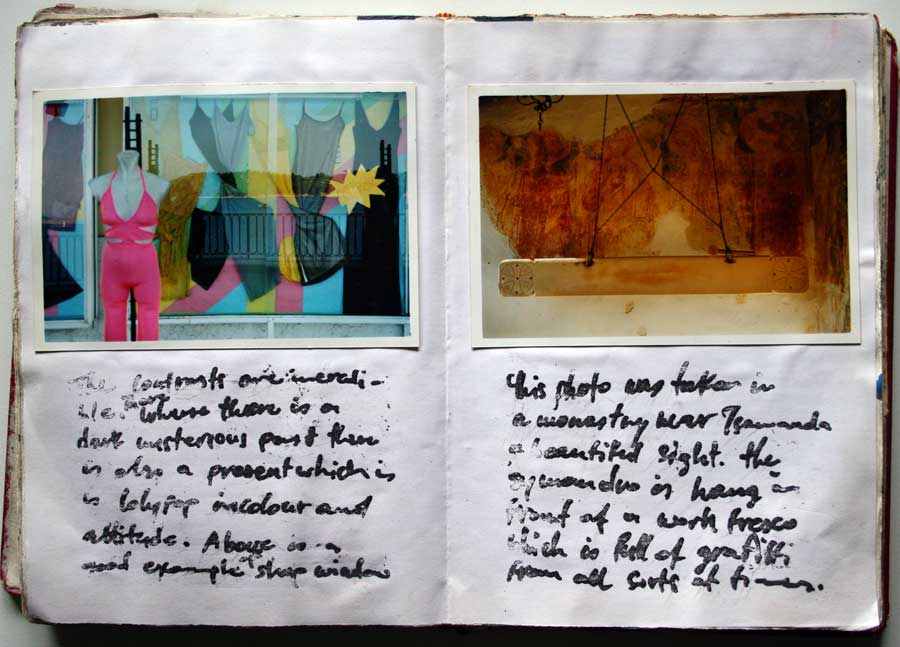 The contrasts are incredi-
ble. where there is a
dark misterious past there
is also a present which is
is lolypop in colour and
attitude. Above is a
good example of shop window
this photo was taken in
a monastry near Tsamanda
a beautifull sight. the
is hang in
front of a work fresco
which is full of grafitti
from all sorts of times.